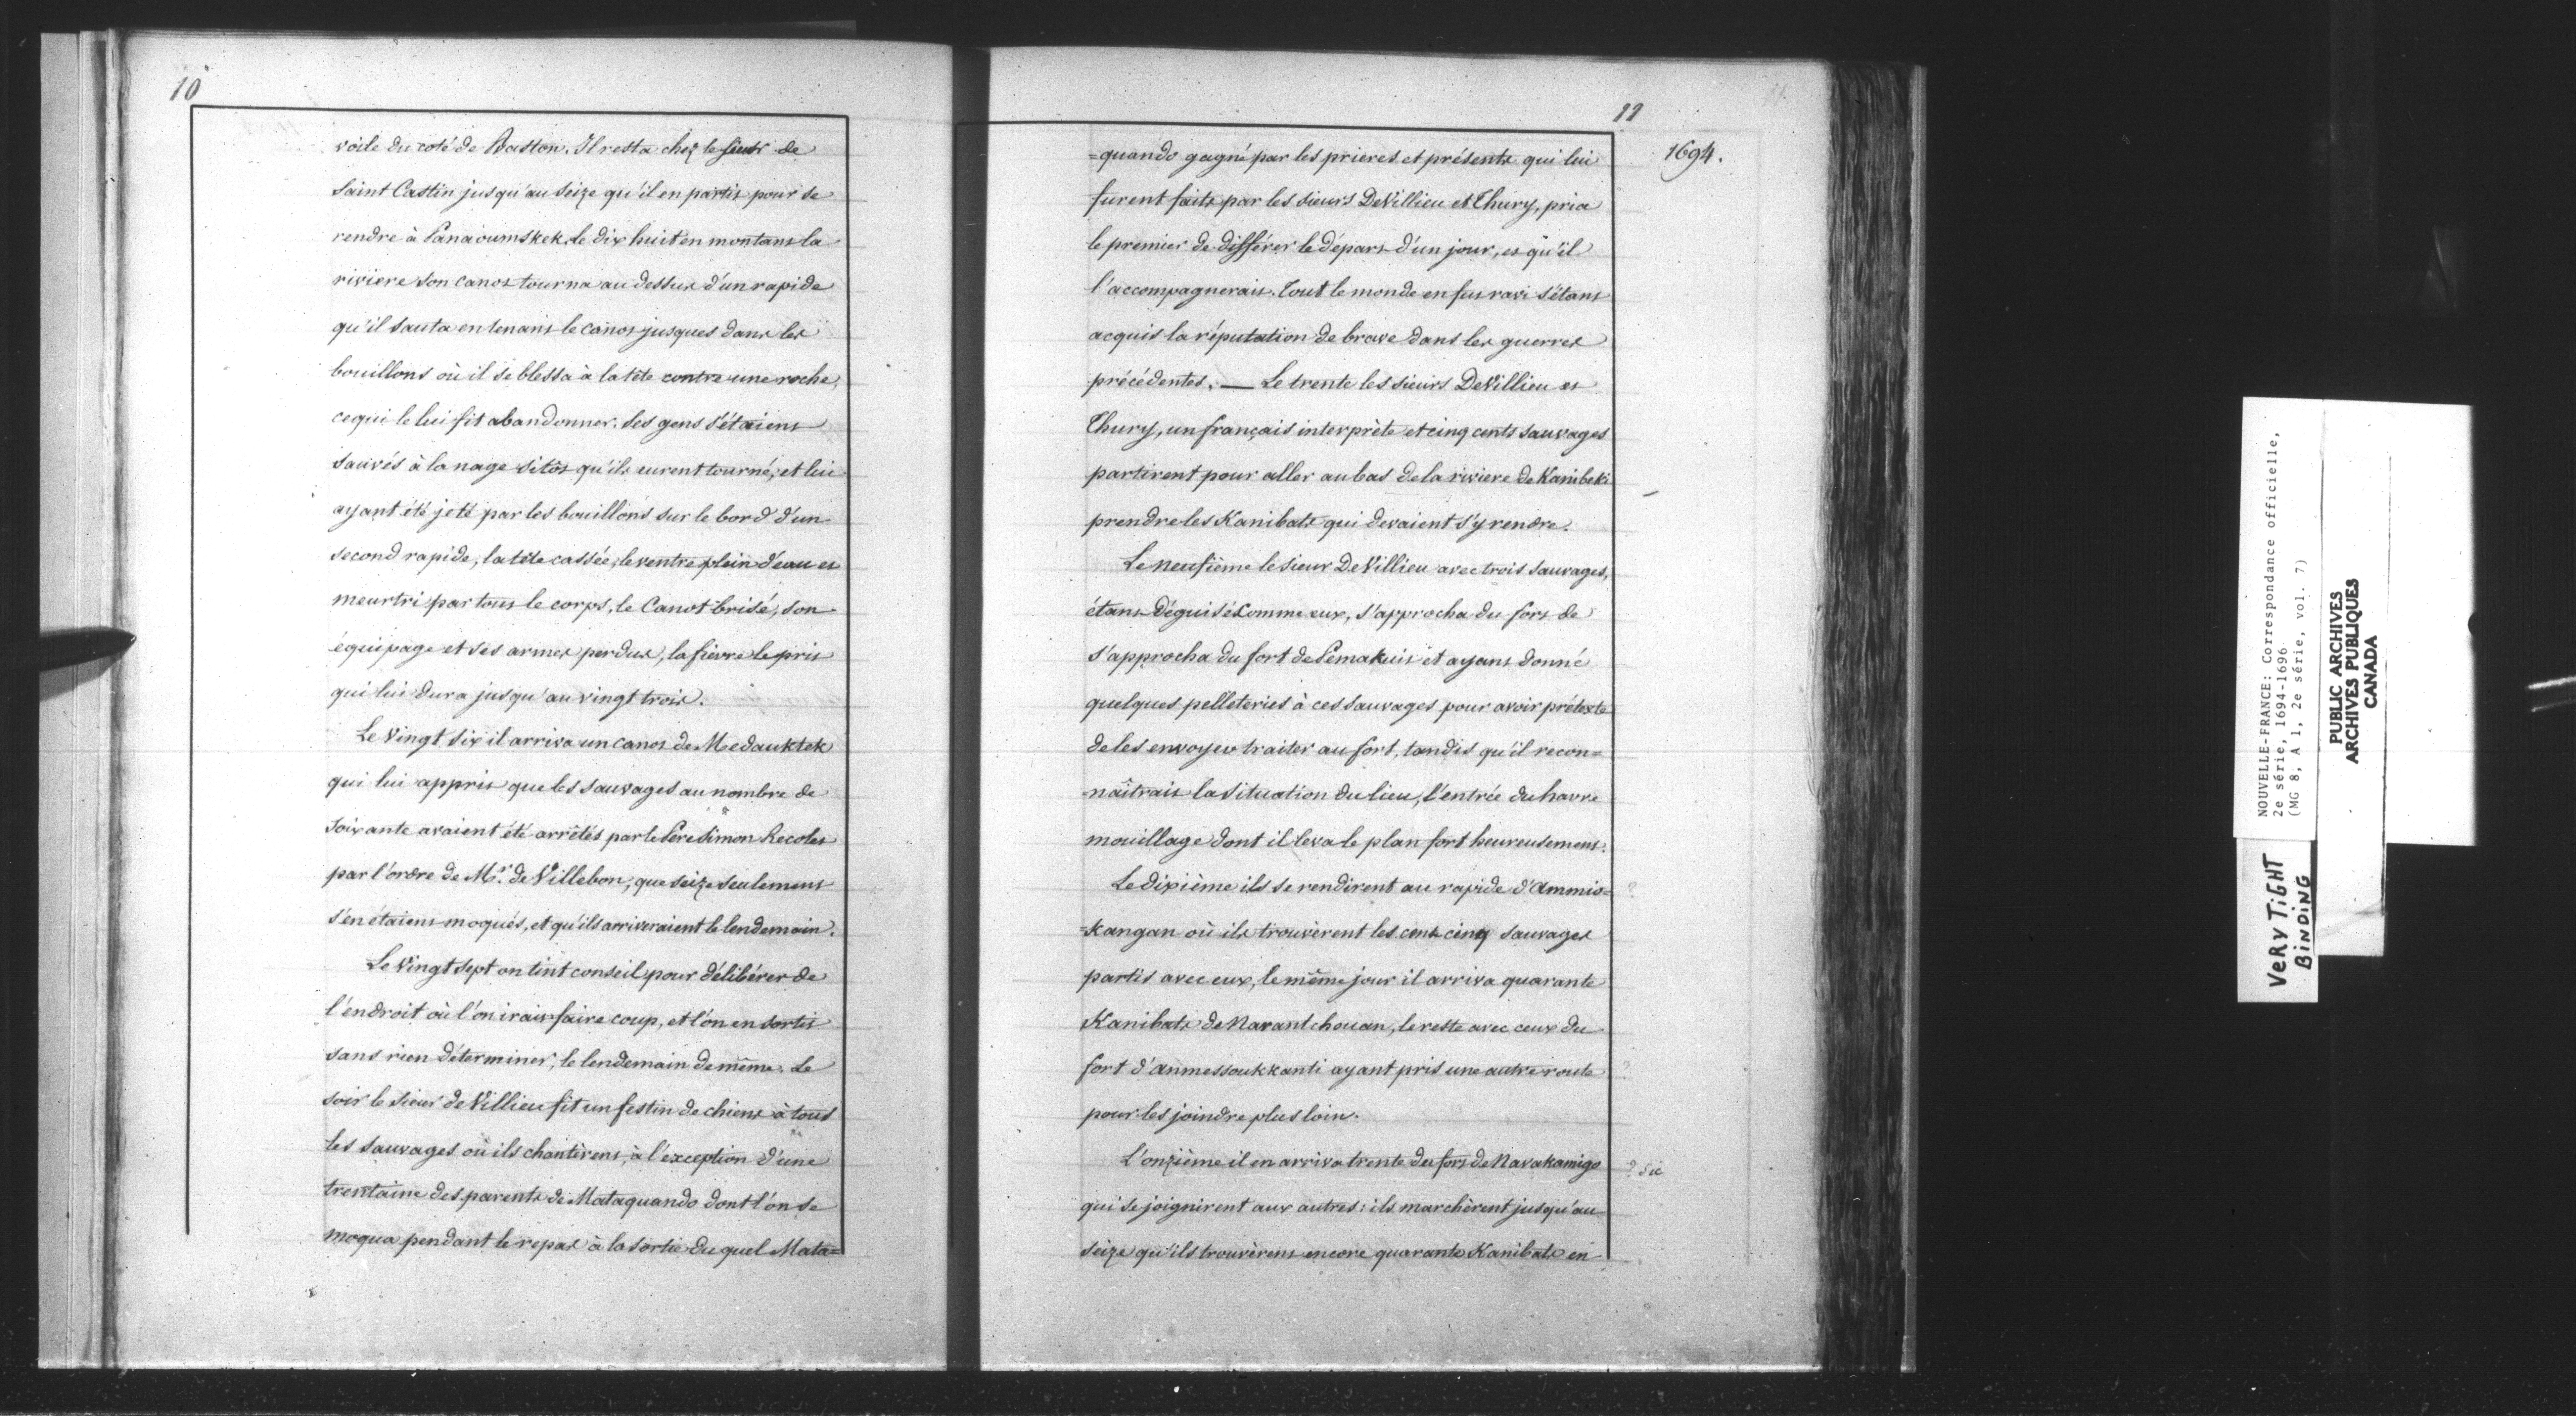 10
voile du coté de Baston. Il resta chez le Sieur de
Saint Castin jusqu'au seize qu'il en partit pour se
rendre à Panaoumskek. Le dix huit en montant la
riviere son canot tourna au dessus d'un rapide
qu'il sauta en tenant le canot jusques dans les
bouillons où il se blessa à la tête contre une roche,
ce qui le lui fit abandonner. Ses gens s'étaient
sauvés à la nage sitôt qu'ils eurent tourné, et lui
ayant été jeté par les bouillons sur le bord d'un
second rapide, la tête cassée, le ventre plein d'eau et
meurtri par tout le corps, le Canot brisé, son
équipage et ses armes perdus, la fièvre le prit
qui lui dura jusqu'au vingt trois.
Le Vingt six il arriva un canot de Medauktek
qui lui apprit que les Sauvages au nombre de
soixante avaient été arrêtés par le Père Simon Recolet
par l'ordre de Mr. de Villebon, que seize seulement
s'en étaient moqués, et qu'ils arriveraient le lendemain.
Le Vingt sept on tint conseil pour délibérer de
l'endroit où l'on irait faire coup, et l'on en sortit
sans rien déterminer, le lendemain de même. Le
soir le Sieur de Villieu fit un festin de chiens à tous
les Sauvages où ils chantèrent, à l'exception d'une
trentaine des parents de Mataquando dont l'on se
moqua pendant le repas à la sortie du quel Mata=
11
1694.
=quando gagné par les prieres et présents qui lui
furent faits par les sieurs DeVillieu et Thury, pria
le premier de différer le départ d'un jour, et qu'il
l'accompagnerait. Tout le monde en fut ravi s'étant
acquis la réputation de brave dans les guerres
précédentes. — Le trente les sieurs DeVillieu et
Thury, un français interprète et cinq cents sauvages
partirent pour aller au bas de la riviere de Kanibeki
prendre les Kanibats qui devaient s'y rendre.
Le neufième le sieur DeVillieu avec trois sauvages,
étant déguisé comme eux, s'approcha du fort de
s'approcha du fort de Pemakuit et ayant donné
quelques pelleteries à ces sauvages pour avoir prétexte
de les envoyer traiter au fort, tandis qu'il recon=
naîtrait la situation du lieu, l'entrée du havre
mouillage dont il leva le plan fort heureusement.
Le dixième ils se rendirent au rapide d'Ammio= ?
=kangan où ils trouvèrent les cent cinq sauvages
partis avec eux, le même jour il arriva quarante
Kanibats de Narantchouan, le reste avec ceux du
fort d'Anmessoukkanti ayant pris une autre route ?
pour les joindre plus loin.
L'onzième il en arriva trente du fort de Navakamigo ? sic
qui se joignirent aux autres: ils marchèrent jusqu'au
seize qu'ils trouvèrent encore quarante Kanibats en
NOUVELLE-FRANCE: Correspondance officielle,
2e série, 1694-1696.
(MG 8, A 1, 2e série, vol. 7)
PUBLIC ARCHIVES
ARCHIVES PUBLIQUES
CANADA
VERY TIGHT
BINDING